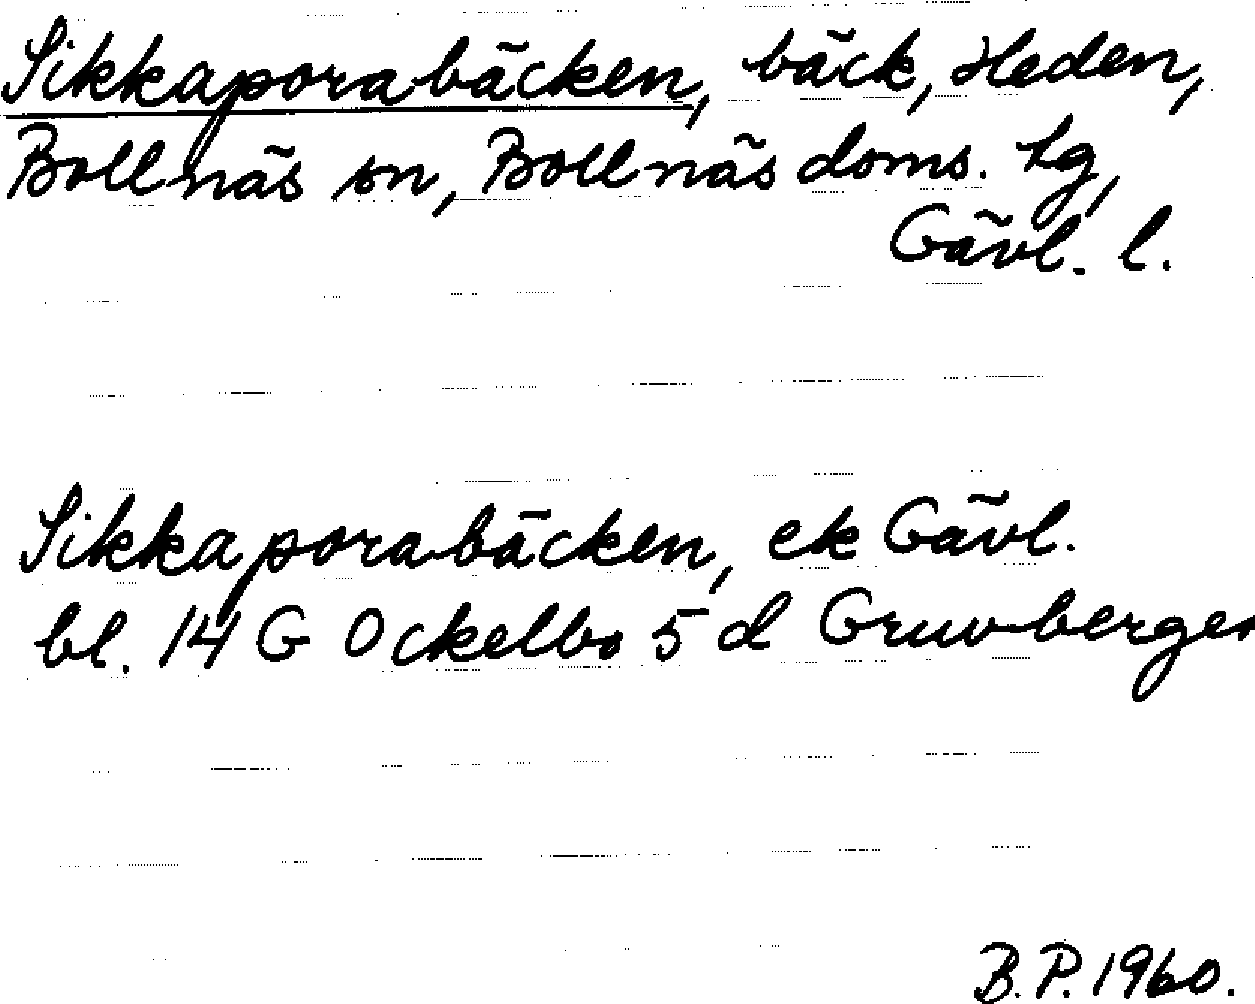 Sikkaporabäcken, bäck, Heden,
Bollnäs sn, Bollnäs doms. tg,
Gävl. l.
Sikkaporabäcken, ek Gävl.
bl. 14 G Ockelbo 5 d Gruvbergen
B.P. 1960.